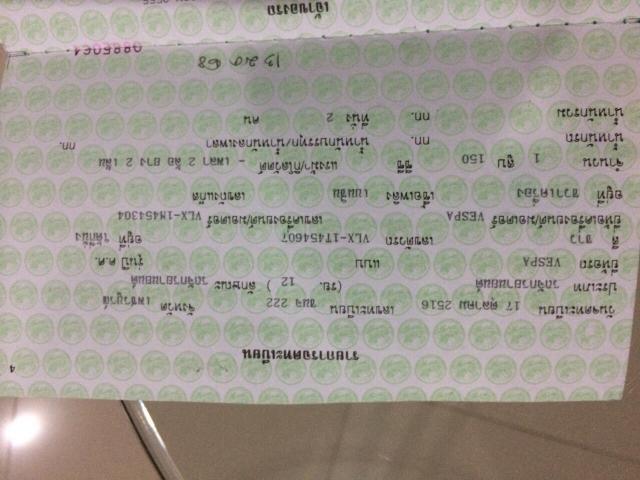 4
รายการจดทะเบียน
วันจดทะเบียน 17 ตุลาคม 2516 เลขทะเบียน ขนฉ 222 จังหวัด เพชรบูรณ์
ประเภท รถจักรยานยนต์ (รย. 12 ) ลักษณะ รถจักรยานยนต์
ยี่ห้อรถ VESPA แบบ รุ่นปี ค.ศ.
สี ขาว เลขตัวรถ VLX-1T454607 อยู่ที่
ยี่ห้อเครื่องยนต์/มอเตอร์ VESPA เลขเครื่องยนต์/มอเตอร์ VLX-1M454304
อยู่ที่ ขวาเครื่อง เชื้อเพลิง เบนซิน เลขถังแก๊ส
จำนวน 1 สูบ 150 ซีซี แรงม้า/กิโลวัตต์ - เพลา 2 ล้อ ยาง 2 เส้น
น้ำหนักรถ กก. น้ำหนักบรรทุก/น้ำหนักลงเพลา กก.
น้ำหนักรวม กก. ที่นั่ง 2 คน
0885064
เจ้าของรถ